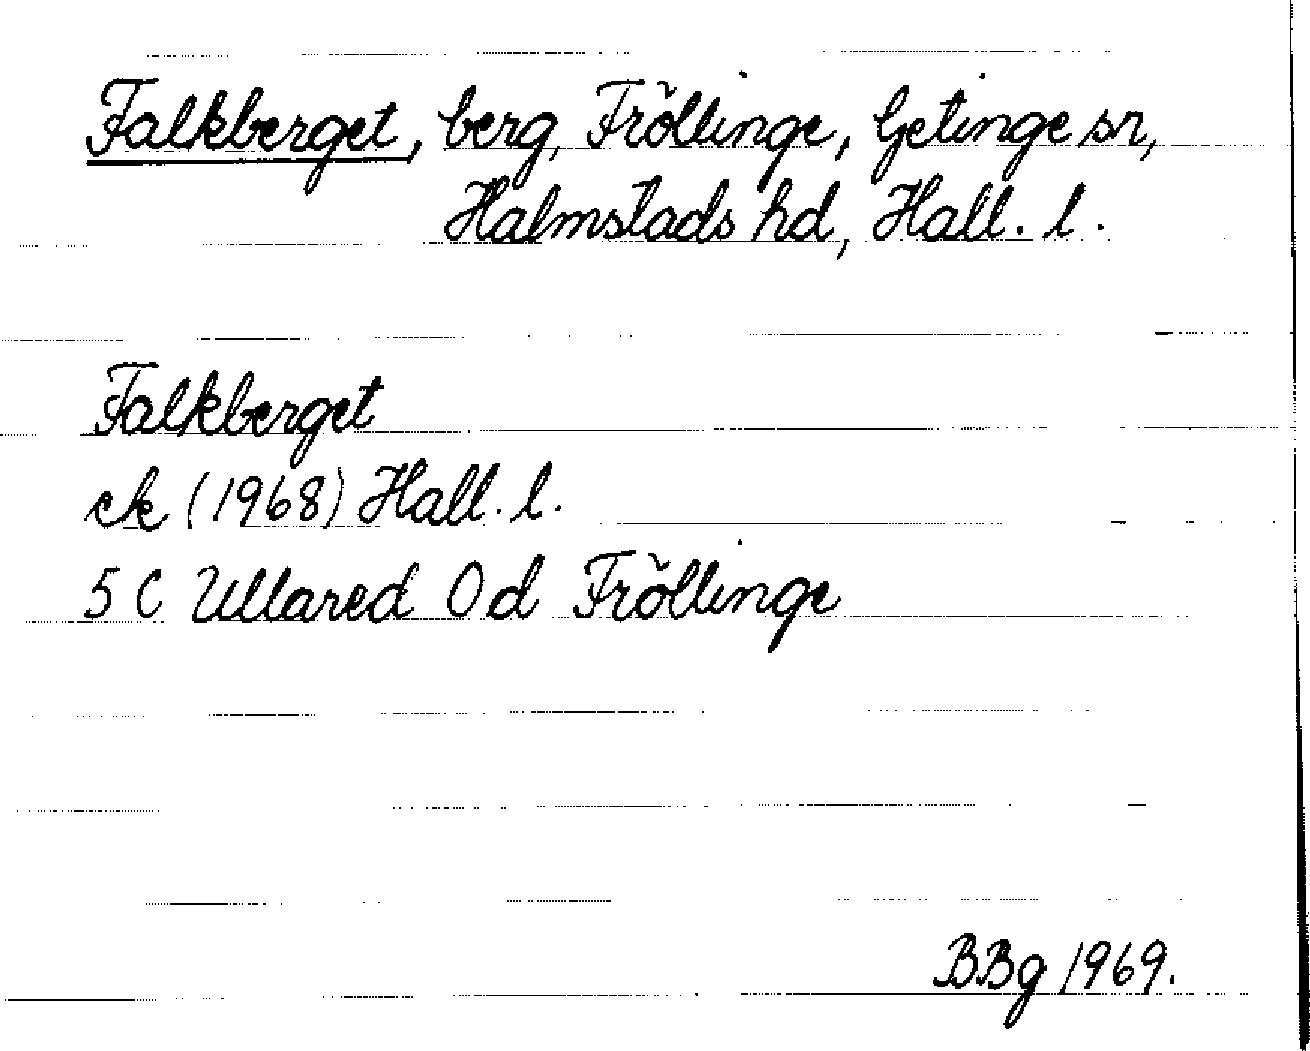 Falkberget, berg, Fröllinge, Getinge sn,
Halmstads hd, Hall. l.
Falkberget
ek (1968) Hall. l.
5 C Ullared 0 d Fröllinge
BBg 1969.